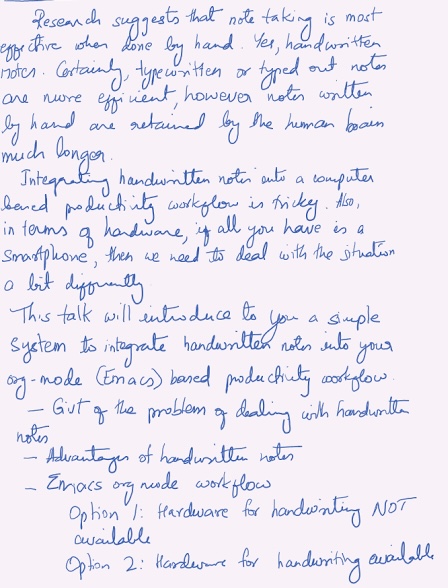 Research suggests that note taking is most
effective when done by hand. Yes, handwritten
notes. Certainly, typewritten or typed out notes
are more efficient, however notes written
by hand are retained by the human brain
much longer.
Integrating handwritten notes into a computer
based productivity workflow is tricky. Also,
in terms of hardware, if all you have is a
smartphone, then we need to deal with the situation
a bit differently
This talk will introduce to you a simple
system to integrate handwritten notes into your
org-mode (Emacs) based productivity workflow.
- Gist of the problem of dealing with handwritten
notes
- Advantages of handwritten notes
- Emacs org mode workflow
Option 1: Hardware for handwriting NOT
available
Option 2: Hardware for handwriting available